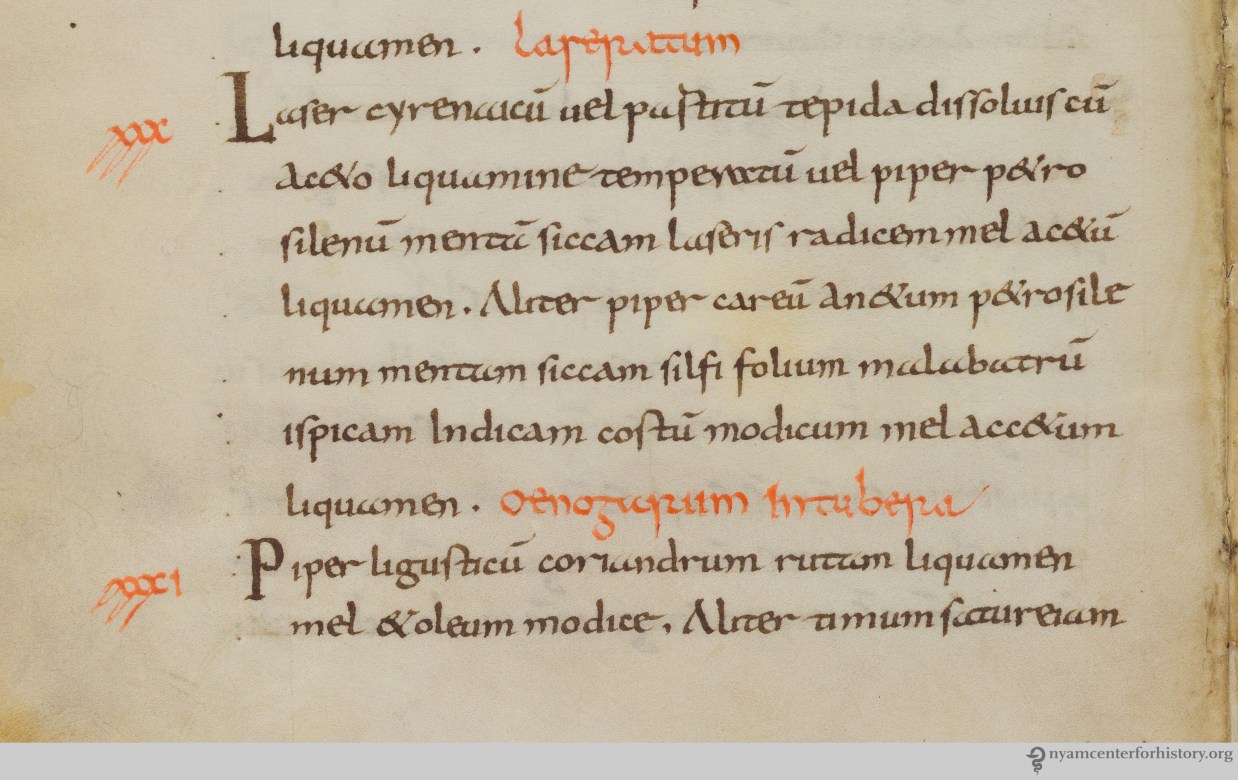 liquamen . laseratum
xxx Laser cyrenaicū uel partitū tepida dissoluis cū
ac&o liquamine temperatū uel piper p&ro
silenū mentā siccam laseris radicem mel ac&ū
liquamen . Aliter piper careū an&um p&rosile
num mentam siccam silfi folium malabatrū
ispicam Indicam costū modicum mel acc&um
liquamen . Oenogarum In tubera
xxxi Piper ligusticū coriandrum rutam liquamen
mel &oleum modice . Aliter timum satureiam
nyamcenterforhistory.org